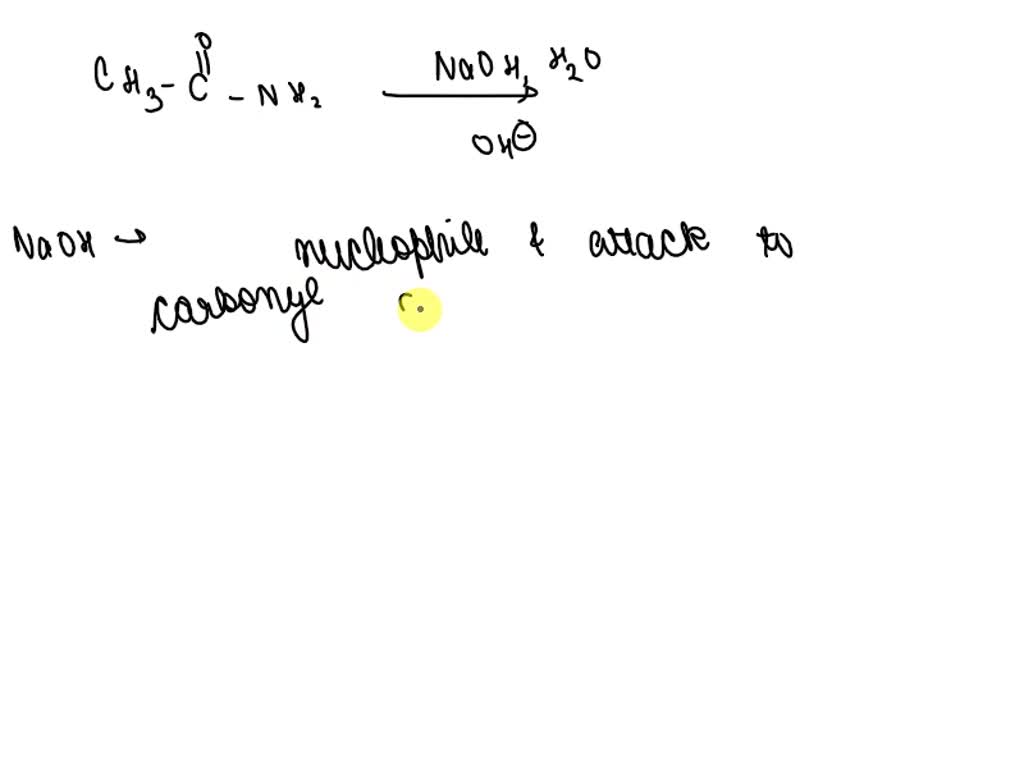 O
CH3-C-NH2 NaOH, H2O
OH⊖
NaOH → nucleophile & attack to
carbonyl